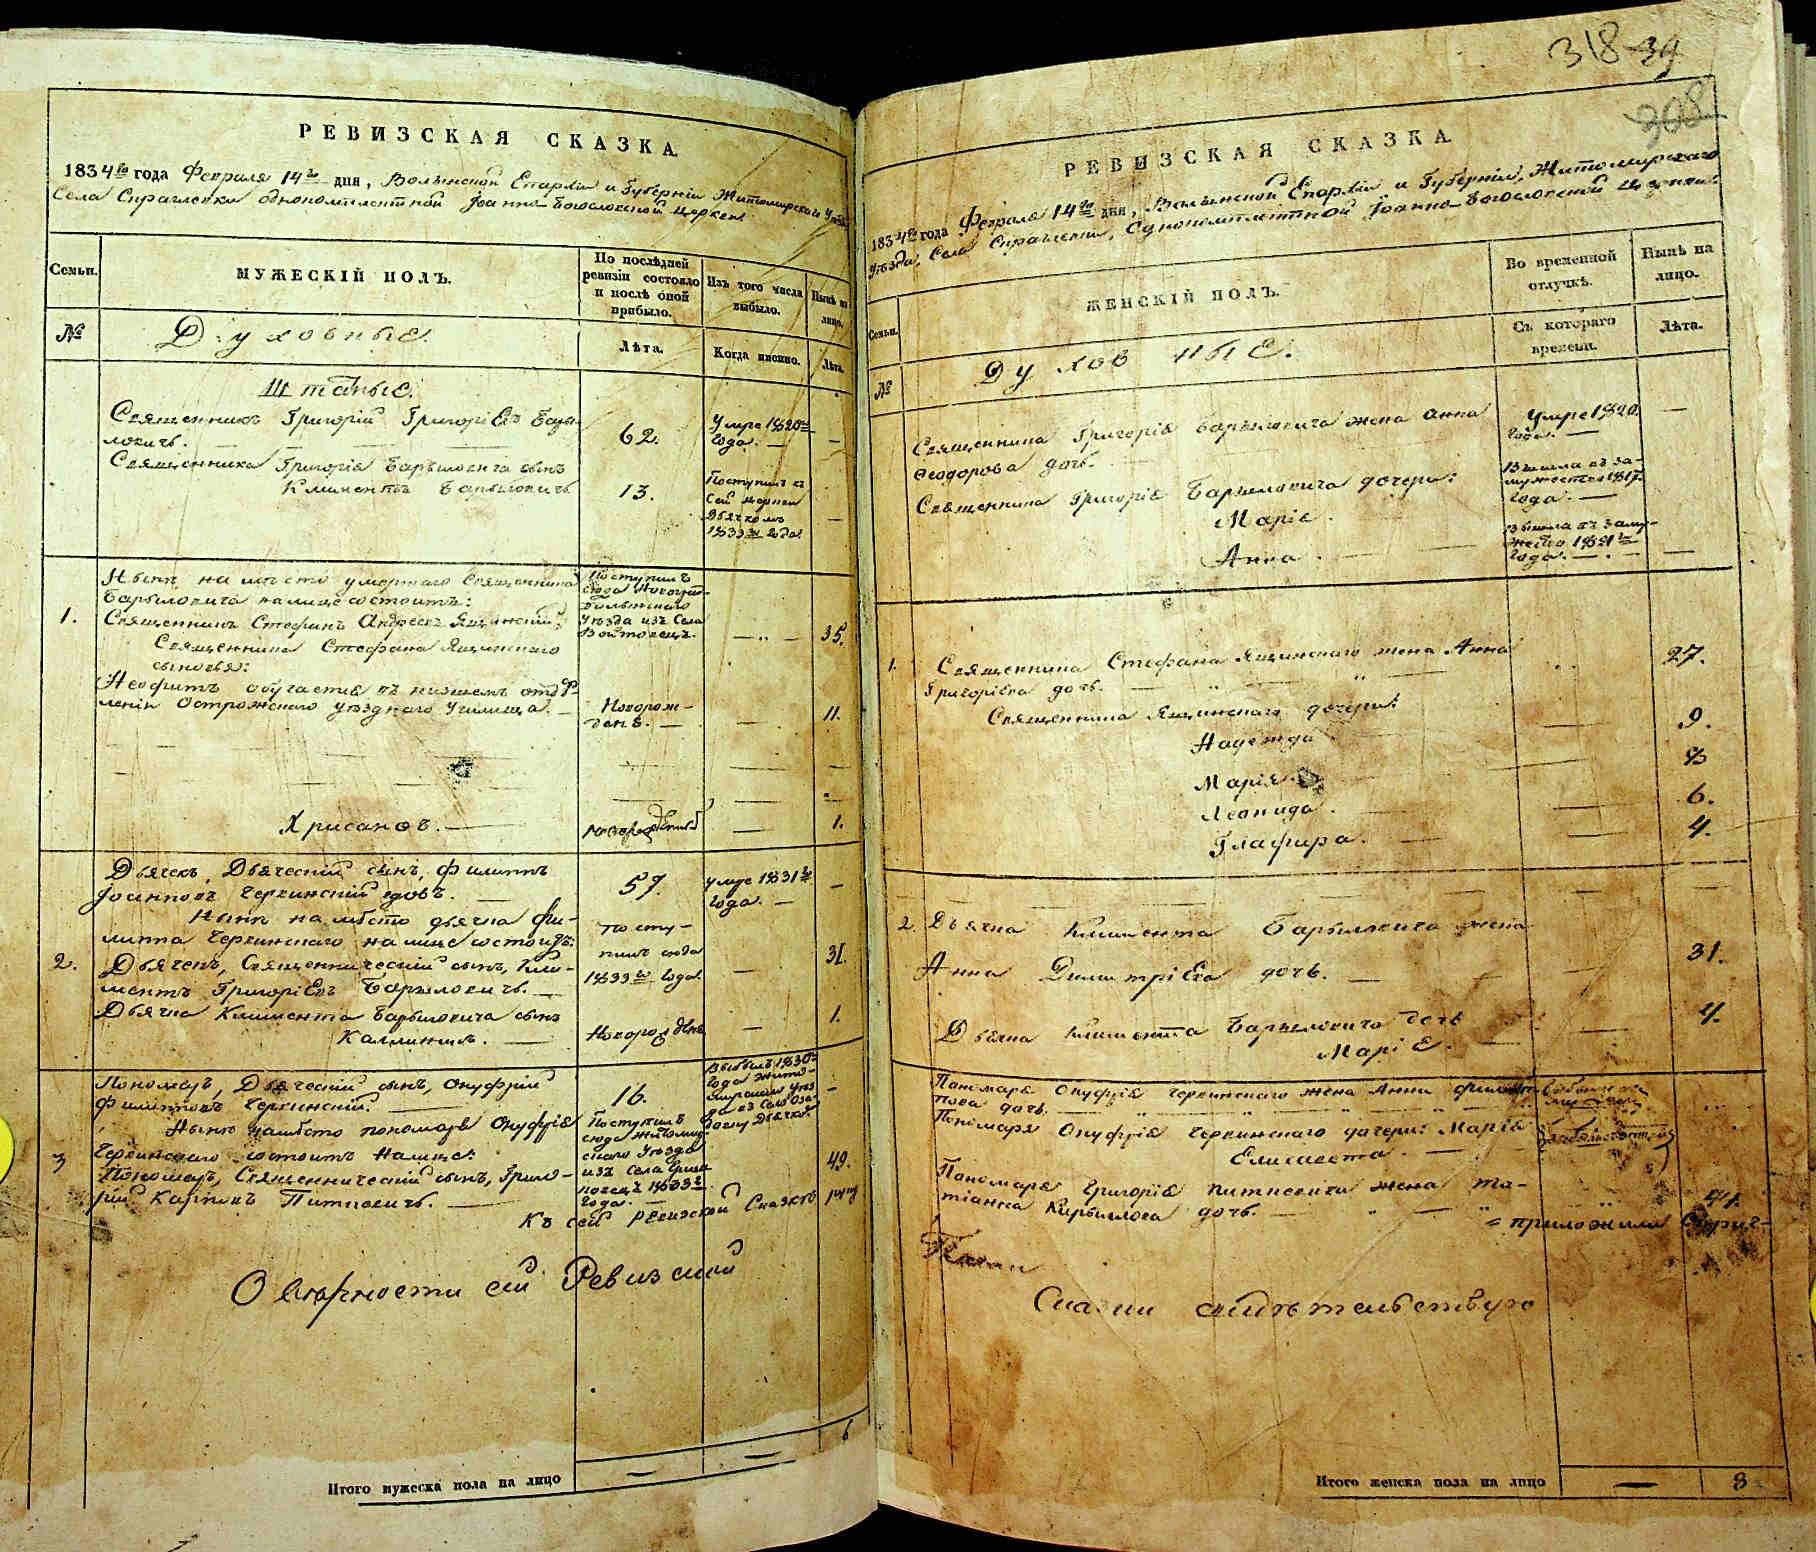 РЕВИЗСКАЯ СКАЗКА.
1834го года Февраля 14го дня, Волынской Епархіи и Губерніи Житомирскаго Уѣзда
Села однокомплектной Іоанно-Богословской церкви
Семьи.
МУЖЕСКІЙ ПОЛЪ.
По послѣдней ревизіи состояло и послѣ оной прибыло.
Изъ того числа выбыло.
Нынѣ на лицо.
№
Духовные.
Лѣта.
Когда именно.
Лѣта.
Штатные.
Священникъ Григорій Григоріевъ Бары-
ловичъ.
62.
Умре 1820го
года.
Священника Григорія Барыловича сынъ
Климентъ Барыловичъ
13.
Поступилъ къ
сей церкви
Дьячкомъ
1833го года
1.
Нынѣ на мѣсто умершаго Священника
Барыловича налице состоитъ:
Священникъ Стефанъ Андреевъ Ящинскій;
Поступилъ
сюда Новоград-
волынскаго
Уѣзда изъ Села
35.
Священника Стефана Ящинскаго
сыновья:
Неофитъ обучается въ низшемъ отдѣ-
леніи Острожскаго уѣзднаго Училища.
Новорож-
денъ.
11.
Хрисанфъ.
новорожденный
1.
Дьячекъ, Дьяческій сынъ, Филиппъ
Іоанновъ Червинскій вдовъ.
57.
Умре 1831го
года.
Нынѣ на мѣсто дьячка Фи-
липпа Червинскаго на лице состоитъ:
2.
Дьячекъ, Священническій сынъ, Кли-
ментъ Григоріевъ Барыловичъ.
посту-
пилъ сюда
1833го года.
31.
Дьячка Климента Барыловича сынъ
Каллиникъ.
Новорожденъ
1.
Пономарь, Дьяческій сынъ, Онуфрій
Филипповъ Червинскій.
16.
Выбылъ 1830го
года Жито-
мирскаго Уѣз-
да въ Село
Дьячкомъ
Нынѣ намѣсто пономаря Онуфрія
Червинскаго состоитъ Налице:
3
Пономарь, Священническій сынъ, Григо-
рій Карповъ Питкевичъ.
Поступилъ
сюда Житомир-
скаго Уѣзда
изъ Села
1833го
года.
49.
Къ сей Ревизской Сказкѣ руку
О вѣрности сей Ревизской
Итого мужеска пола на лицо
6
318 39
308
РЕВИЗСКАЯ СКАЗКА.
1834го года Февраля 14го дня, Волынской Епархіи и Губерніи, Житомирскаго
Уѣзда, Села однокомплектной Іоанно-Богословской церкви.
Семьи.
ЖЕНСКІЙ ПОЛЪ.
Во временной отлучкѣ.
Нынѣ на лицо.
№
Духовные.
Съ котораго времени.
Лѣта.
Священника Григорія Барыловича жена Анна
Ѳеодорова дочь.
Умре 1820
года.
Священника Григорія Барыловича дочери:
Марія
Вышла въ за-
мужество 1817
года.
Анна
Вышла въ заму-
жество 1821го
года.
1.
Священника Стефана Ящинскаго жена Анна
Григоріева дочь.
27.
Священника Ящинскаго дочери:
Надежда
9.
Марія
8
Леонида.
6.
Глафира.
4.
2.
Дьячка Климента Барыловича жена
Анна Димитріева дочь.
31.
Дьячка Климента Барыловича дочь
Марія.
4.
Пономаря Онуфрія Червинскаго жена Анна
дочь.
Пономаря Онуфрія Червинскаго дочери: Марія
Елисавета.
Пономаря Григорія Питкевича жена Та-
тіанна дочь.
приложилъ
Сказки свидѣтельствую
Итого женска пола на лицо
8